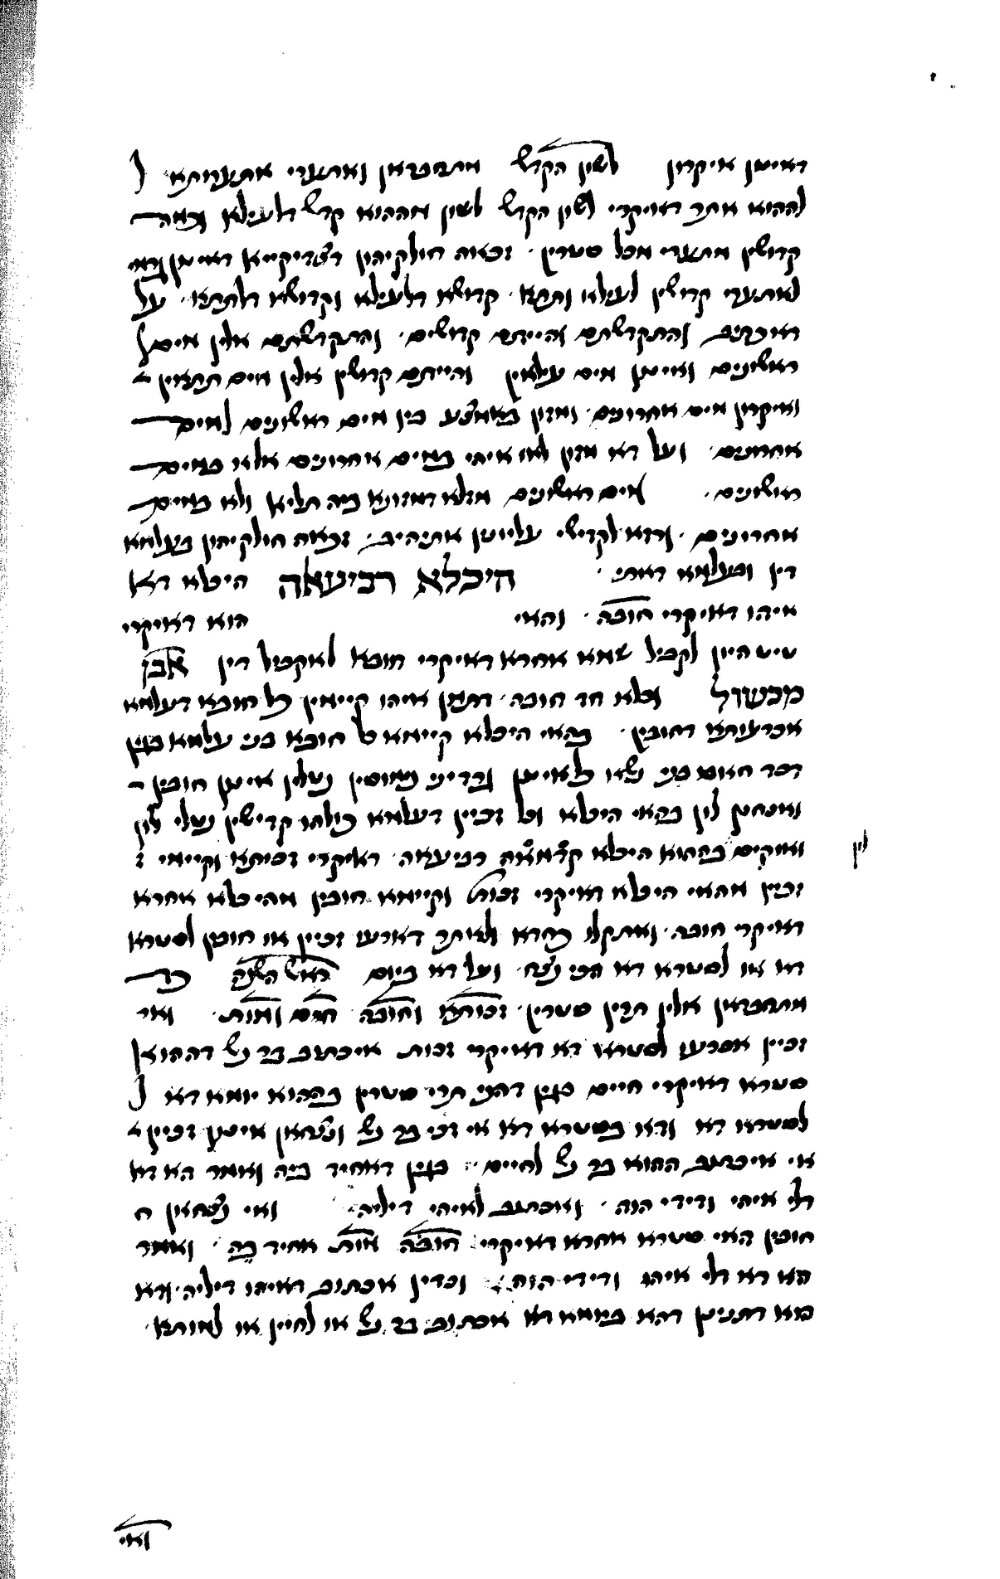 דאינון איקרון לשון הקדש מתחבראן ואתערי אתערותא
לההוא אתר דאיקרי לשון הקדש לשון מההוא קדש דלעילא וכמה
קדושין מתערי מכל סטרין . זכאה חולקיהון דצדיקייא דאינון ידעי
לאתערי קדושין לעילא ותתא . קדושא דלעילא וקדושא דלתתא . על
דא כתיב והתקדשתם והייתם קדושים . והתקדשתם אלין מים
ראשונים ואינון מים עילאין והייתם קדושין אלין מים תתאין
ואיקרון מים אחרונים . ומזון באמצע בין מים ראשונים למים
אחרונים . ועל דא מזון לאו איהו במים אחרונים אלא במים
ראשונים . מים ראשונים מזלא דמזונא ביה תליא ולא במים
אחרונים . ורזא לקדישי עליונין אתיהיב . זכאה חולקיהון בעלמא
דין ובעלמא דאתי . היכלא רביעאה היכלא דא
איהו דאיקרי חובה . והאי הוא דאיקרי
שית היון לקביל שמא אחרא דאיקרי חובא לאקטול דין אבן
מכשול וכלא חד חובה . דתמן איהו קיימין כל חובא דעלמא
אכרעותא דחובין . בהאי היכלא קיימא כל חובא בני עלמא כגון
דכד חאט בני נשא כל אינון ובדיני נמוסין נטלין אינון חובין
ואנחין לון בהאי היכלא וכל זכיין דעלמא כולהו קדישין נטלי לון
ומקים בההוא היכלא קדמאה רביעאה . דאיקרי זכותא וקיימי
זכיין מהאי היכלא דאיקרי זכות וקיימא חובין מהיכלא אחרא
דאיקרי חובה . ואתקלו כחדא ולאתר דאכרעו זכיין או חובין לסטרא
דא או לסטרא דא הכי נצח . ועל דא ביום ראש השנה כד
מתחבראן אלין תרין סטרין . זכותא וחובה חיים ומות . ואי
זכיין אכרעו לסטרא דא דאיקרי זכות איכתוב בר נש דההוא
סטרא דאיקרי חיים כגון דהני תרי סטרין בההוא יומא דא
לסטרא דא ודא בסטרא דא אי זכי בר נש ונצחאן אינון זכיין
אי איכתוב ההוא בר נש לחיים . כגון דאחיד ביה ואמר הא דא
דלי איהו ודידי הוה . ואכתוב לאיהו דיליה . ואי נצחאן
חובין האי סטרא אחרא דאיקרי חובה מות אחיד ביה . ואמר
הא דא דלי איהו ודידי הוה . וכדין אכתוב דאיהו דיליה . ודא
הוא דתנינן דהא ביומא דא אכתוב בר נש או לחיין או למותא .
לון
ואי